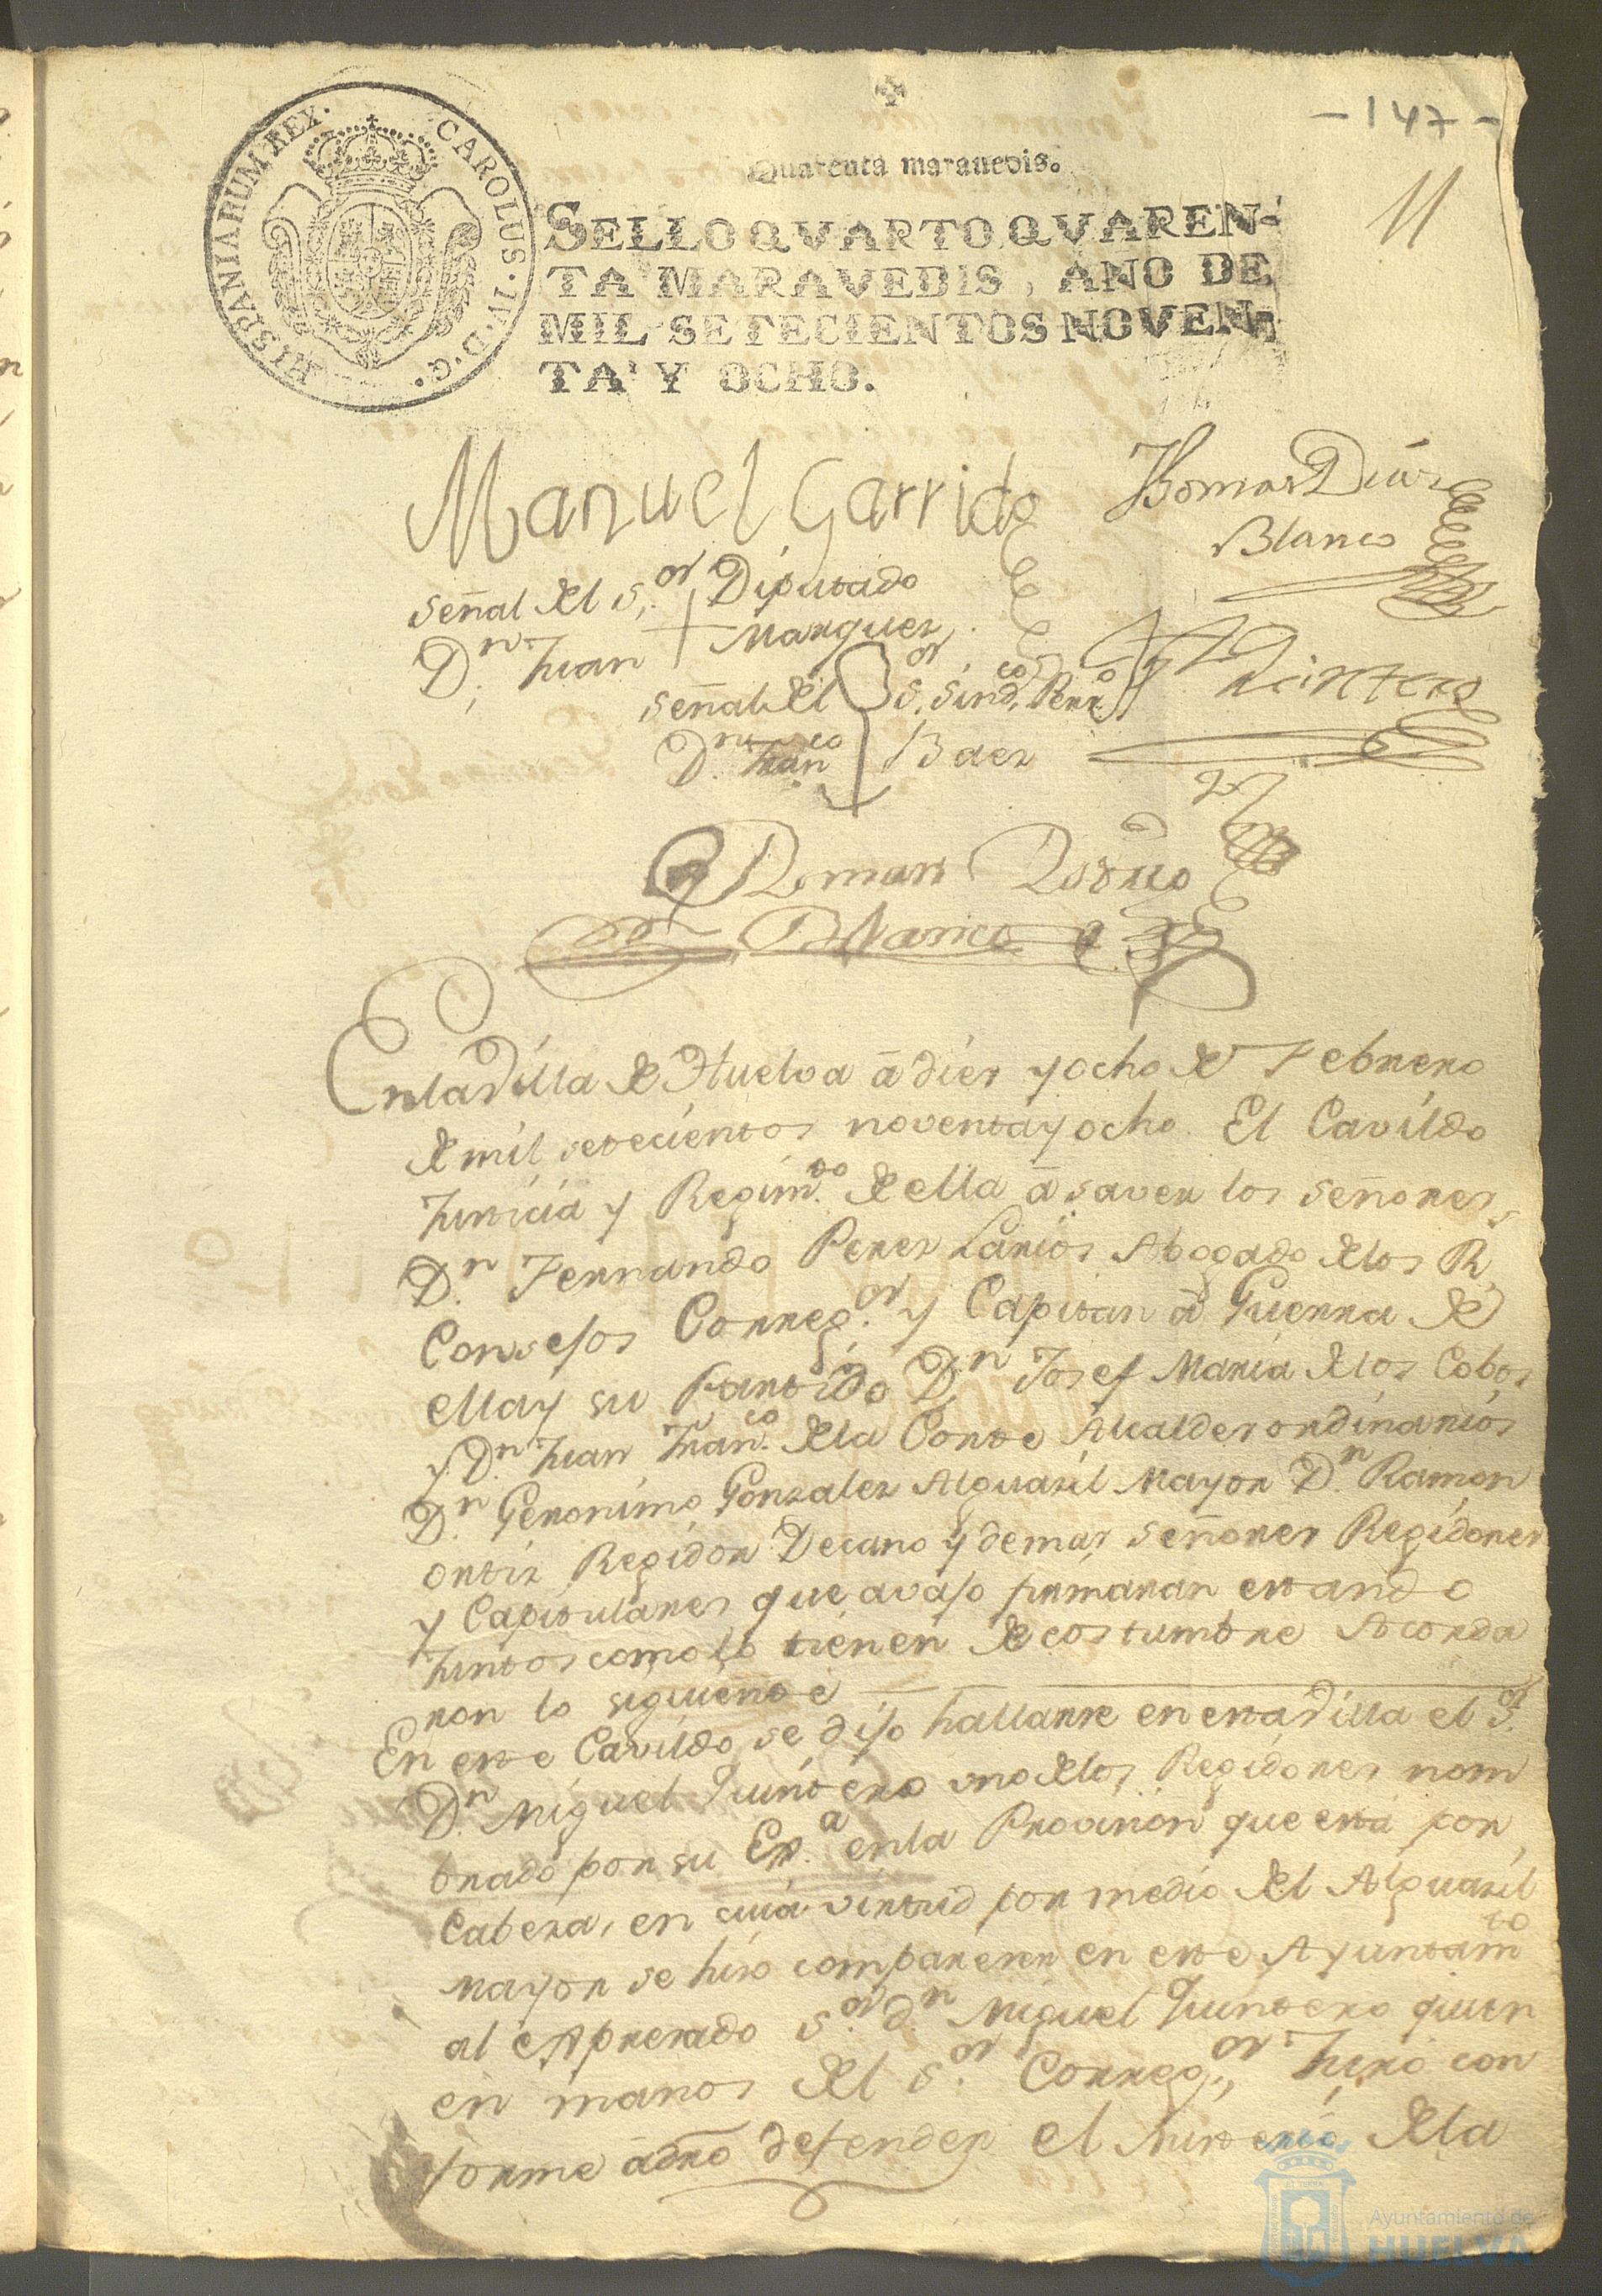 - 147 -
11
Quarenta maravedis.
HISPANIARUM REX. CAROLUS. IV. D. G.
SELLO QVARTO, QVAREN-
TA MARAVEDIS, AÑO DE
MIL SETECIENTOS NOVEN-
TA Y OCHO.
Manuel Garrido
Thomas Diaz
Blanco
Señal del S.or Diputado
D.n Juan + Marquez
Quintero
Señal del S.or Sind.co Perx.o
D.n Fran.co Baez
Roman
Blanco
En la Villa de Huelva à diez y ocho de Febrero
de mil setecientos noventa y ocho. El Cavildo
Justicia y Regim.to de ella à saver los Señores,
D.n Fernando Perez Larios Abogado de los R.
Consejos Correg.or y Capitan à Guerra de
ella y su Partido D.n Josef Maria de los Cobos
y D.n Juan Fran.co de la Corte Alcaldes ordinarios
D.n Geronimo Gonzalez Alguazil Mayor D.n Ramon
ortiz Regidor Decano y demas Señores Regidores
y Capitulares que avajo firmaran estando
Juntos como lo tienen de costumbre Acorda
ron lo siguiente
En este Cavildo se dijo hallarse en esta Villa el S.or
D.n Miguel Quintero uno de los Regidores nom
brado por su Ex.a en la Provision que está por
Cabeza, en cuia virtud por medio del Alguazil
Mayor se hizo comparezer en este Ayuntam.to
al expresado S.or d.n Miguel Quintero quien
en manos del S.or Correg.or Juró con
forme à dro defender el Misterio de la
Ayuntamiento de
HUELVA